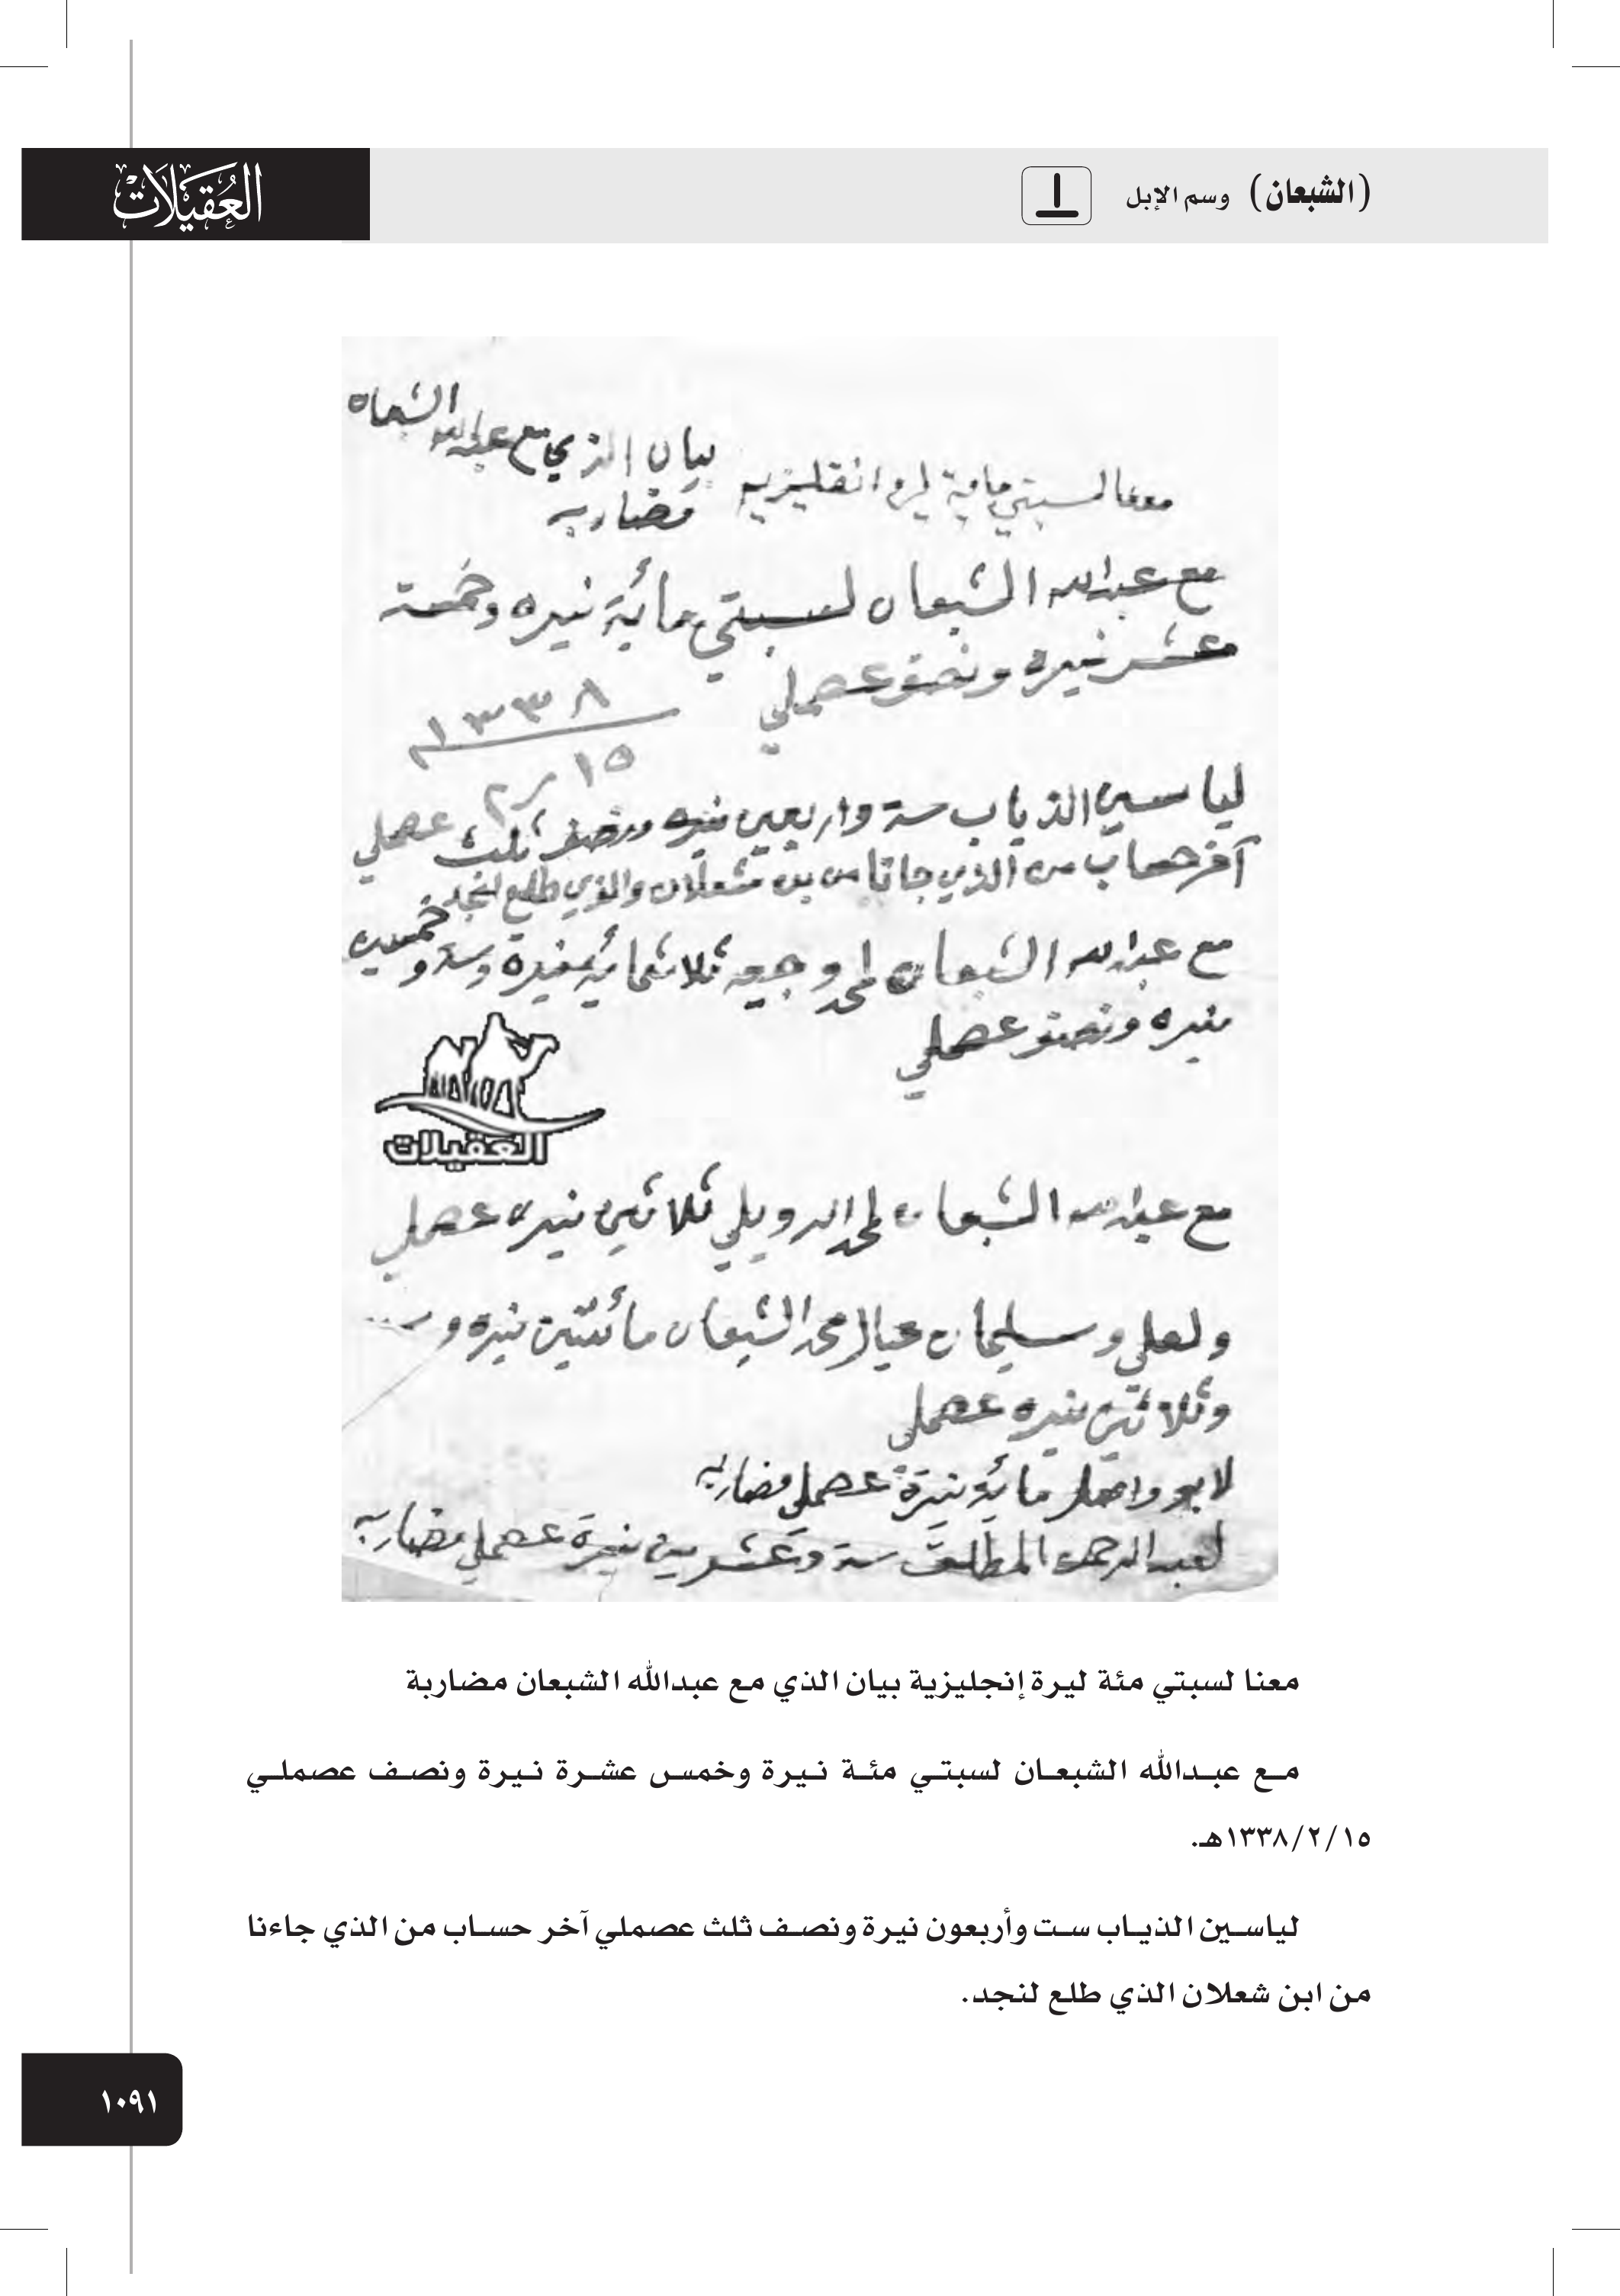 (الشبعان) وسم الإبل
العُقيَلات
بيان الذي مع عبدالله الشبعان
معنا لسبتي ماية ليره انقليزيه
مضاربه
مع عبدالله الشبعان لسبتي مائية نيره وخمسة
عشر نيره ونصف عصملي
١٣٣٨
١٥ ر ٢
لياسين الذياب ستة واربعين نيره ونصف ثلث عصملي
آخر حساب من الذي جانا من بن شعلان والذي طلع لنجد
مع عبدالله الشبعان لمحمد وجيعه ثلاثمائية نيرة وستة وخمسين
نيره ونصف عصملي
العقيلات
مع عبدالله الشبعان لمحمد الدويلي ثلاثين نيره عصملي
ولعلي وسليمان عيال محمد الشبعان مائتين نيره و
وثلاثين نيره عصملي
لابو واصل مائية نيرة عصملي مضاربه
لعبد الرحمن المطلق ستة وعشرين نيرة عصملي مضاربه
معنا لسبتي مئة ليرة إنجليزية بيان الذي مع عبدالله الشبعان مضاربة
مع عبدالله الشبعان لسبتي مئة نيرة وخمس عشرة نيرة ونصف عصملي
١٣٣٨/٢/١٥هـ.
لياسين الذياب ست وأربعون نيرة ونصف ثلث عصملي آخر حساب من الذي جاءنا
من ابن شعلان الذي طلع لنجد.
١٠٩١